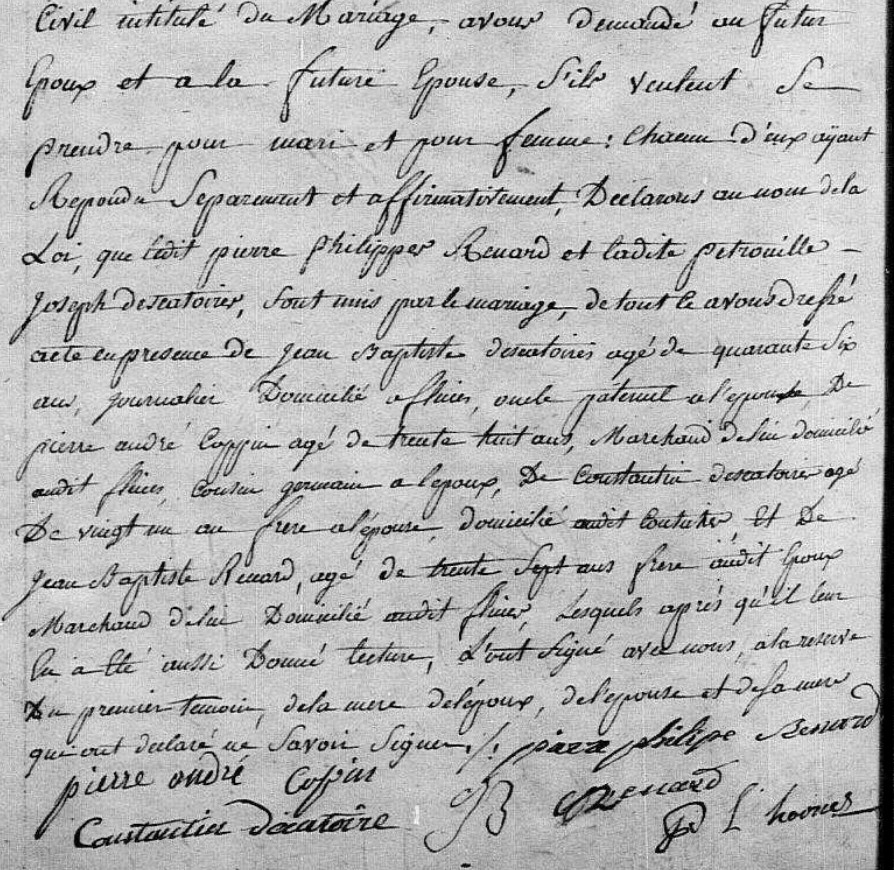 Civil intitulé du Mariage, avons demandé au futur
Epoux et a la future Epouse, S'ils veulent Se
prendre pour mari et pour femme: Chacun d'eux aÿant
Repondu Separement et affirmativement, Declarons au nom de la
Loi, que ledit pierre philippes Renard et ladite petronille
Joseph descatoires, Sont unis par le mariage, de tout ce avons dressé
acte en presence de Jean Baptiste descatoires agé de quarante Six
ans, Journalier Domicilié a flines, oncle paternel a l'epouse, De
pierre andré Coppin agé de trente huit ans, Marchand de lin domicilié
audit flines, Cousin germain a l'epoux, De Constantin descatoires agé
De vingt un an frere a l'épouse, domicilié audit Coutiches, Et De
Jean Baptiste Renard, agé de trente Sept ans frere audit Epoux
Marchand de lin Domicilié audit flines, Lesquels après qu'il leur
En a Eté aussi Donné lecture, L'ont Signé avec nous, a la reserve
Du premier temoin, de la mere de l'époux, de l'epouse et de Sa mere
qui ont declaré ne Savoir Signer ./. piere philipe Renard
pierre andré Copin
JB Renard
Constantin d'ecatoire